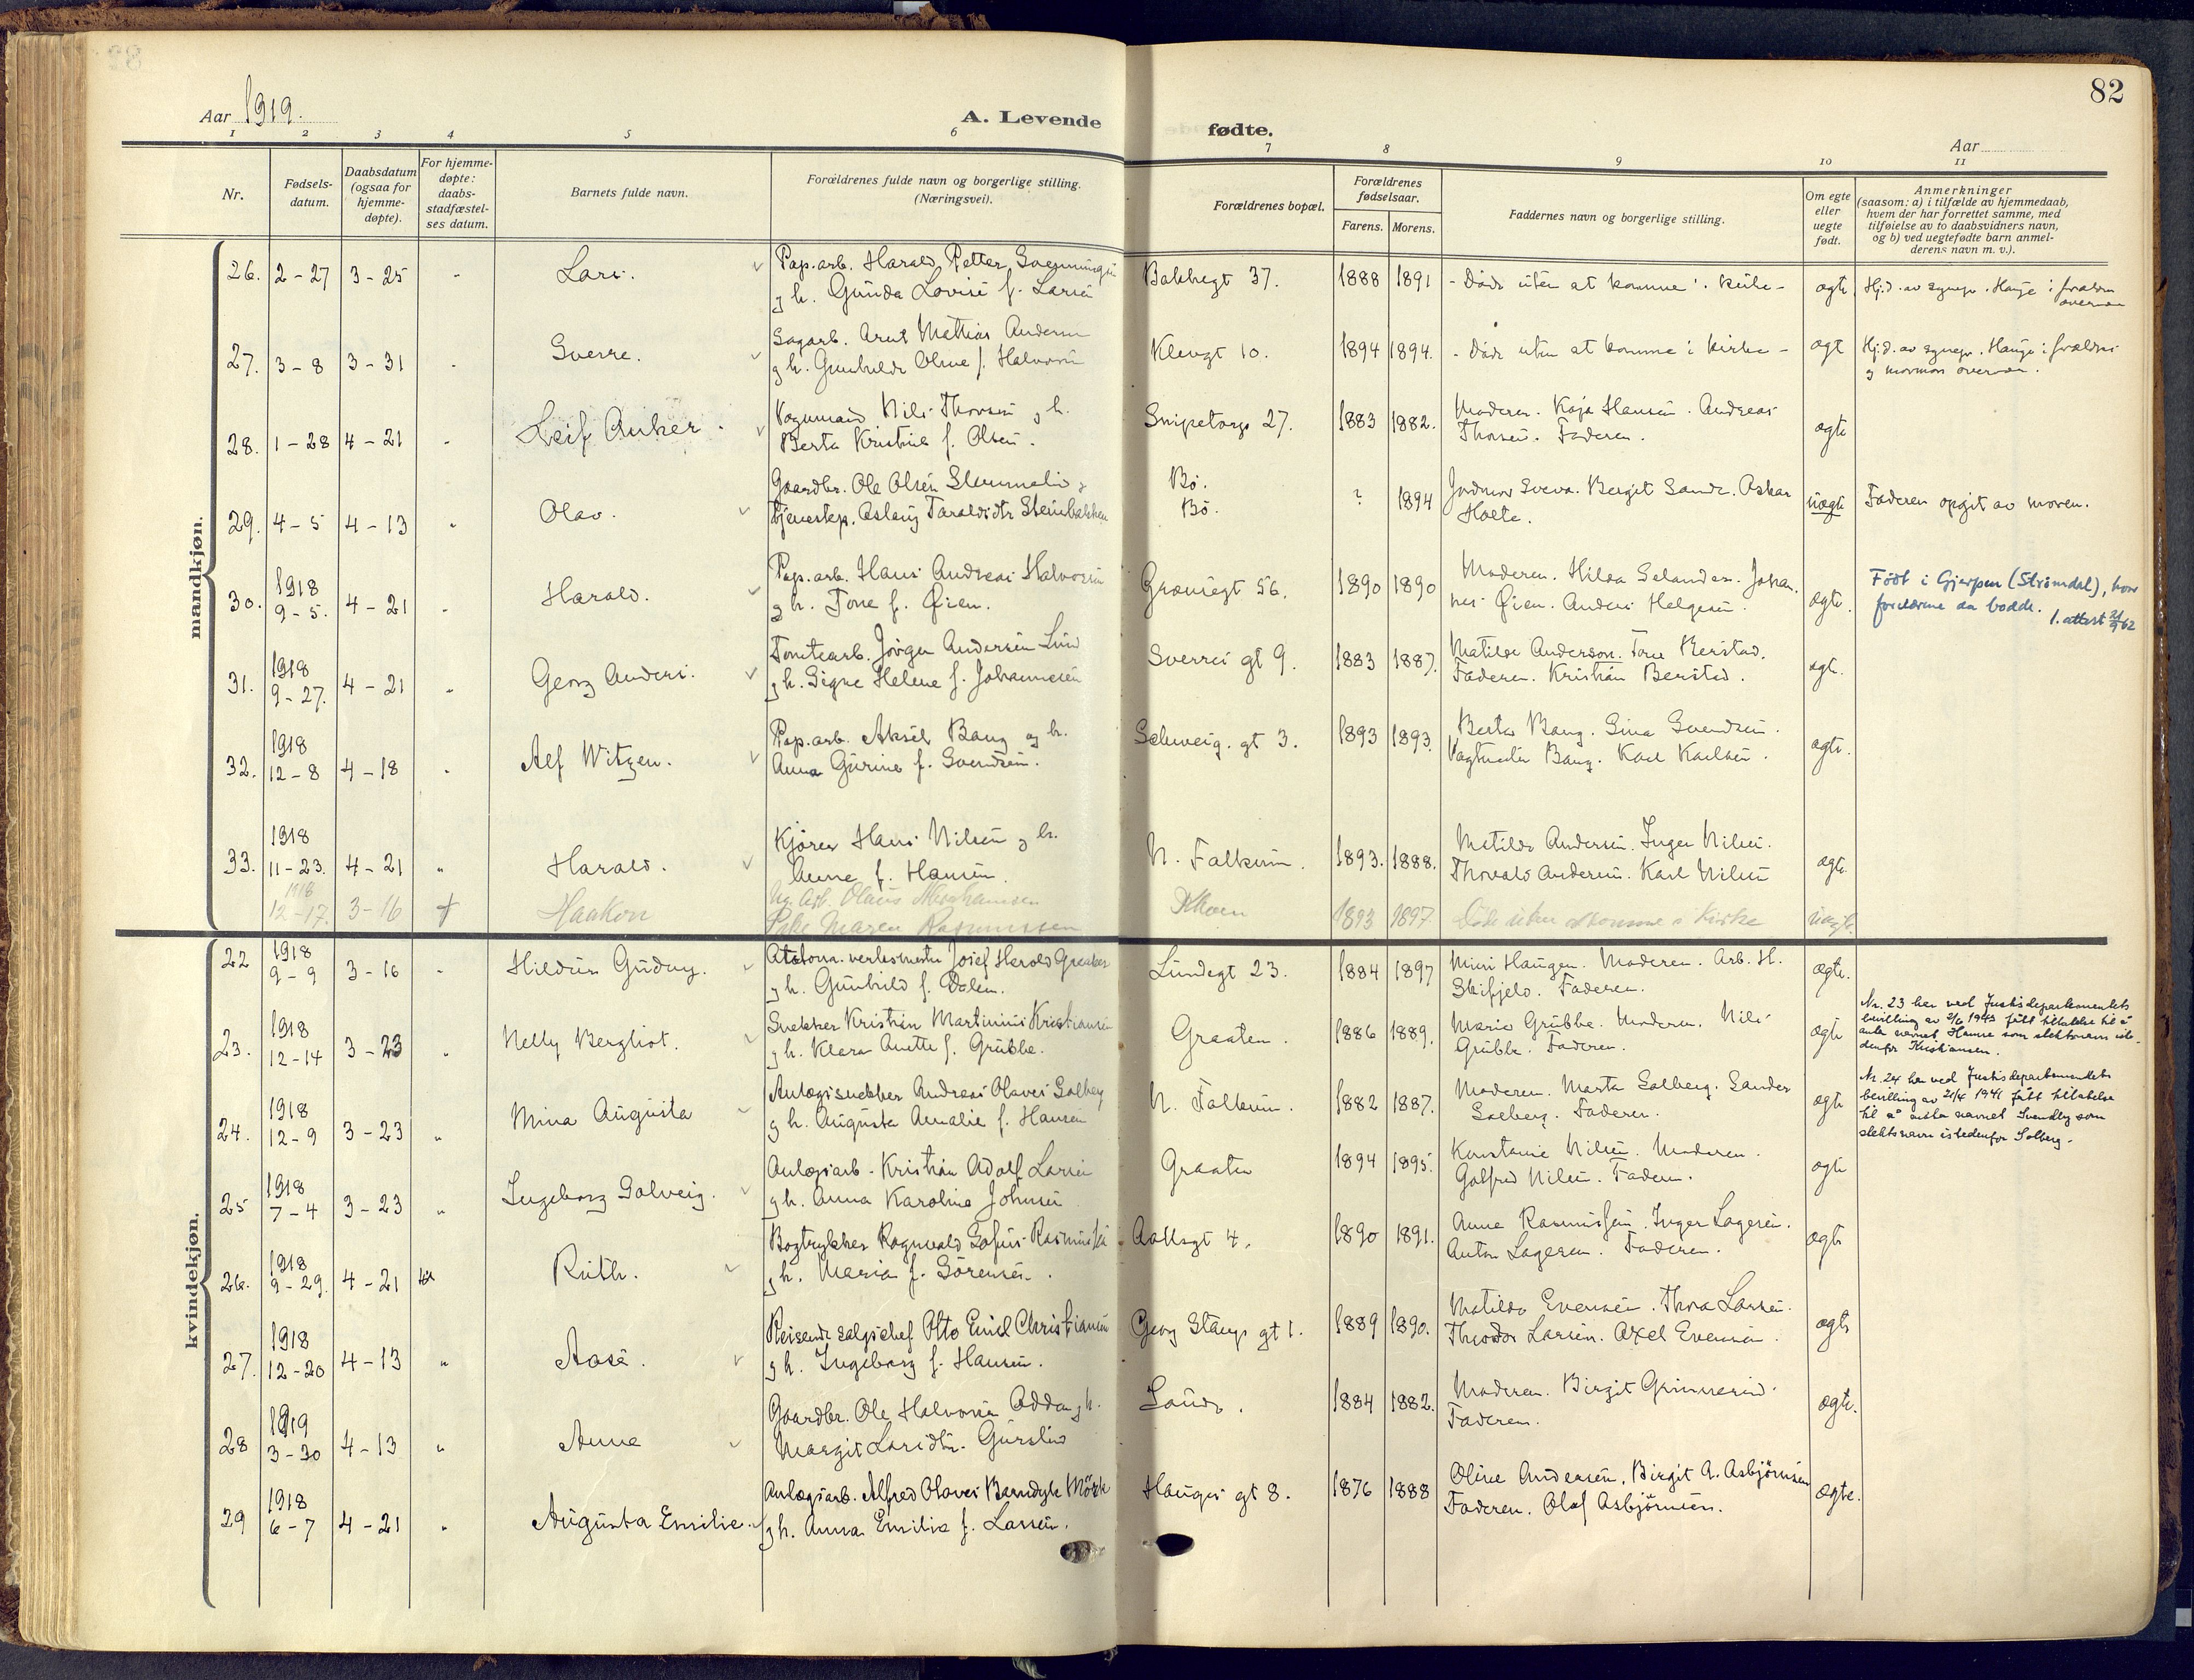 82
Aar 1919.
A. Levende
fødte.
Aar
1 2 3 4 5 6 7 8 9 10 11
Nr.
Fødsels-
datum.
Daabsdatum
(ogsaa for
hjemme-
døpte).
For hjemme-
døpte:
daabs-
stadfæstel-
ses datum.
Barnets fulde navn.
Forældrenes fulde navn og borgerlige stilling.
(Næringsvei).
Forældrenes bopæl.
Forældrenes
fødselsaar.
Farens. Morens.
Faddernes navn og borgerlige stilling.
Om egte
eller
uegte
født.
Anmerkninger
(saasom: a) i tilfælde av hjemmedaab,
hvem der har forrettet samme, med
tilføielse av to daabsvidners navn,
og b) ved uegtefødte barn anmel-
derens navn m. v.).
mandkjøn.
26. 2-27 3-25 " Lars. Pap.arb. Harald Petter
g h. Gunda Lovise f. Larsen
37. 1888 1891 - Døde uten at komme i kirke - ægte
27. 3-8 3-31 " Sverre. Sagarb. Arnt Mathias Andersen
g h. Gunhilde Oline f. Halvorsen
Klevgt 10. 1894 1894. - Døde uten at komme i kirke - ægte
28. 1-28 4-21 " Leif Anker. Vognmand Nils Thorsen g h.
Berta Kristine f. Olsen.
Snipetorp 27. 1883 1882. Moderen. Kaja Hansen. Andreas
Thorsen. Faderen. ægte
29. 4-5 4-13 " Olav. Gaardbr. Ole Olsen
tjenestep. Aslaug Taraldsdtr
Bø.
Bø. ? 1894 Jordmor Sveva. Bergit Sande. Asker
Holte. uægte Faderen opgit av moren.
30. 1918
9-5. 4-21 " Harald. Pap.arb. Hans Andreas Halvorsen
g h. Tone f. Øien.
56. 1890 1890 Moderen. Hilda Selander. Johan-
nes Øien. Anders Helgesen. ægte. Født i Gjerpen (Strømdal), hvor
foreldrene da bodde. 1. attest 21/9 62
31. 1918
9-27. 4-21 " Georg Anders. Jørgen Andersen Lund
g h. Signe Helene f. Johannesen
Sverres gt 9. 1883 1887. Matilde Anderson. Tone Berstad.
Faderen. Kristian Berstad. ægt.
32. 1918
12-8 4-18 " Alf Witzen. Pap.arb. Aksel Bang og h.
Anna Gurine f. Svendsen.
Schweig. gt 3. 1893 1893. Berta Bang. Sina Svendsen.
Bang. Karl Karlsen. ægte.
33. 1918
11-23. 4-21 " Harald. Kjører Hans Nilsen g h.
Anne f. Hansen.
N. Falkum. 1893. 1888. Matilde Andersen. Inger Nilsen.
Thorvald Andersen. Karl Nilsen ægte
1918
12-17. 3-16 † Haakon Olaus
Pike Maren Rasmussen
1893 1897. Døde uten at komme i Kirke uægte.
kvindekjøn.
22 1918
9-9 3-16 " Hildur Gudny. Josef Herold Greaker
g h. Gunhild f. Dalen.
Lundegt 23. 1884 1897 Mimi Haugen. Moderen. Arb. H.
Skifjeld. Faderen. ægte.
23. 1918
12-14 3-23 " Nelly Bergliot. Snekker Kristian Martinius Kristiansen
g h. Klara Anette f. Grubbe.
Graaten. 1886 1889. Marie Grubbe. Moderen. Nils
Grubbe. Faderen. ægte
Nr. 23 har ved Justisdepartementets
bevilling av 2/6 1943 fått tillatelse til å
anta navnet Hanne som slektsnavn iste-
denfor Kristiansen.
24. 1918
12-9 3-23 " Mina Augusta Anlægssnekker Andreas Olaves Solberg
g h. Augusta Amalie f. Hansen
N. Falkum. 1882 1887. Moderen. Marta Solberg. Sander
Solberg. Faderen. ægte
Nr. 24 har ved Justisdepartementets
bevilling av 21/4 1941 fått tillatelse
til å anta navnet Svendby som
slektsnavn istedenfor Solberg.
25 1918
7-4 3-23 " Ingeborg Solveig. Anlægsarb. Kristian Adolf Larsen
g h. Anna Karoline Johnsen
Graaten 1894 1895. Konstanse Nilsen. Moderen.
Golfred Nilsen. Faderen. ægte
26. 1918
9-29. 4-21 Ruth. Bogtrykker Ragnvald Sofus Rasmussen
g h. Maria f. Sørensen.
4. 1890 1891. Anna Rasmussen. Inger Lagesen.
Anton Lagesen. Faderen. ægte
27. 1918
12-20 4-13 " Aase. Reisende salgschef Otto Emil Christiansen
g h. Ingeborg f. Hansen.
Georg Stangs gt 1. 1889 1890. Matilda Evensen. Thora Larsen.
Theodor Larsen. Axel Evensen. ægte
28 1919
3-30 4-13 " Anne Gaardbr. Ole Halvorsen g h.
Margit Larsdtr.
Sande. 1884 1882. Moderen. Birgit
Faderen. ægte.
29 1918
6-7 4-21 " Augusta Emilie. Anlægsarb. Alfred Olaves Barndyk Mørk
g h. Anna Emilie f. Larsen.
Hauges gt 8. 1876 1888 Oline Andersen, Birgit A. Asbjørnsen
Faderen. Olaf Asbjørnsen. ægte.